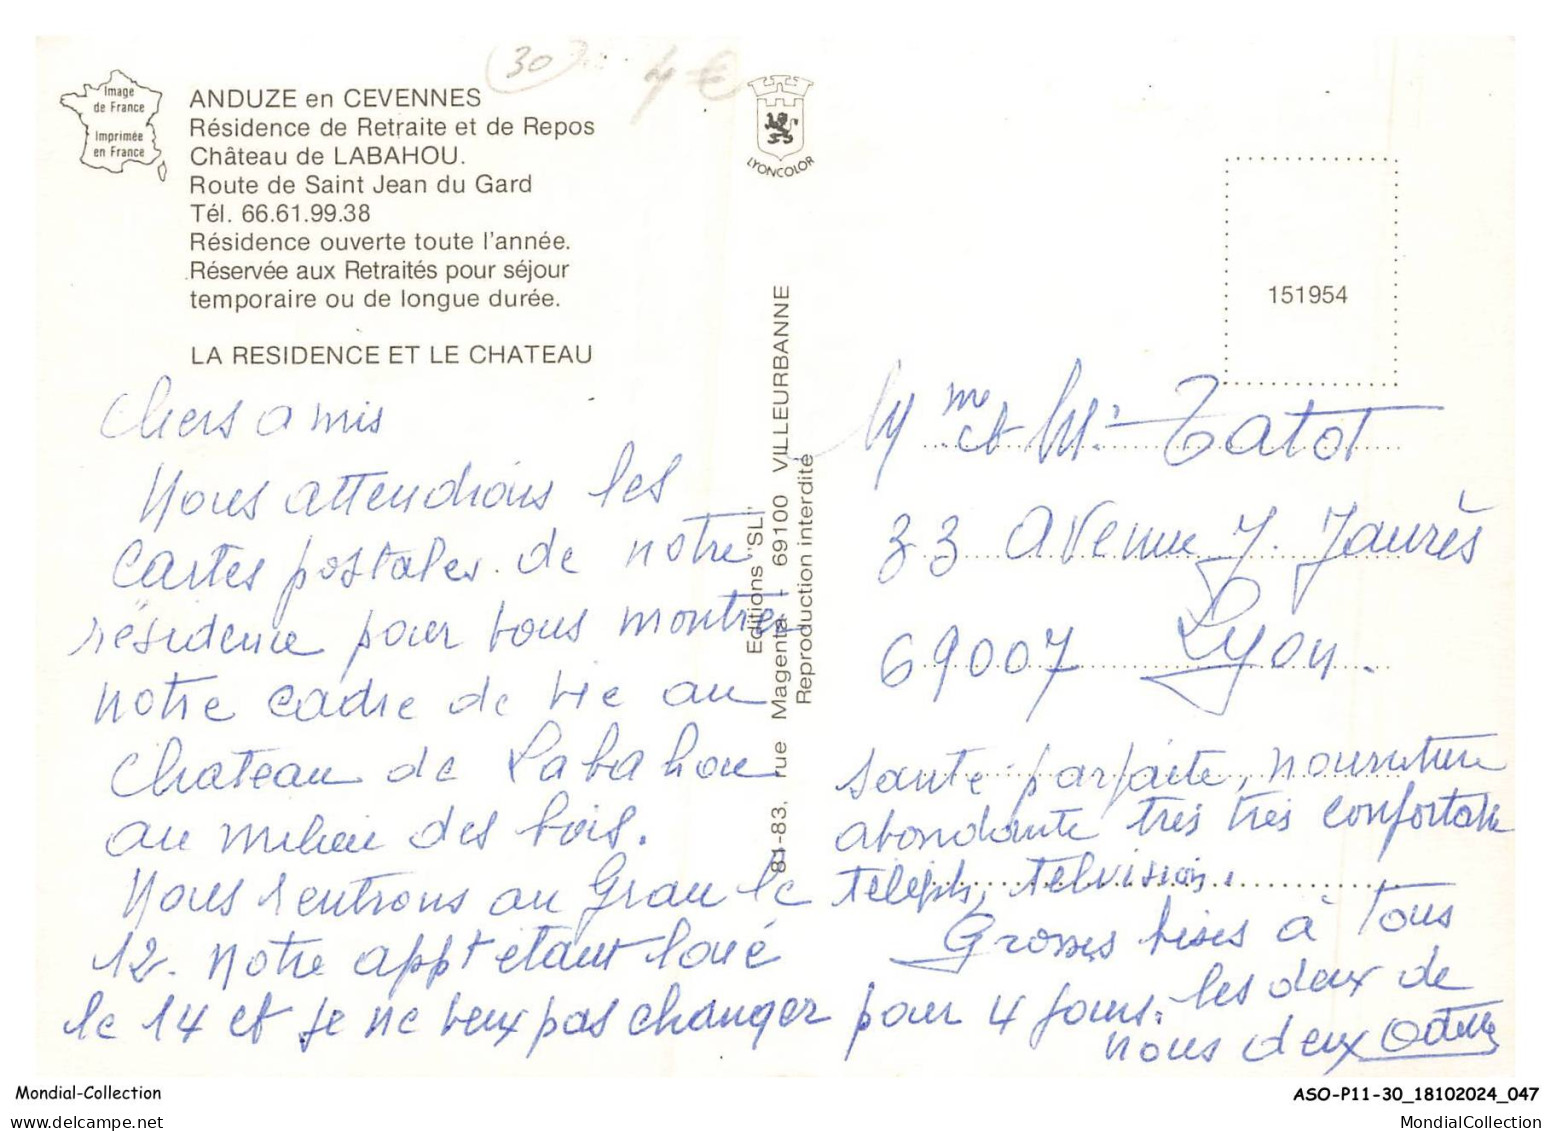 (30)
4€
Image
de France
Imprimée
en France
ANDUZE en CEVENNES
Résidence de Retraite et de Repos
Château de LABAHOU.
Route de Saint Jean du Gard
Tél. 66.61.99.38
Résidence ouverte toute l'année.
Réservée aux Retraités pour séjour
temporaire ou de longue durée.
LA RESIDENCE ET LE CHATEAU
Chers amis
Nous attendions les
cartes postales de notre
résidence pour vous montrer
notre cadre de vie au
Chateau de Labahou
au milieu des bois.
Nous rentrons au Grau le
12. Notre appt étant loué
le 14 et je ne veux pas changer pour 4 jours.
LYONCOLOR
Editions "SL"
81-83, rue Magenta - 69100 VILLEURBANNE
Reproduction interdite
151954
Mme et Mr Tatot
33 avenue J. Jaurès
69007 Lyon.
santé parfaite, nourriture
abondante très très confortable
téleph, télvision.
Grosses bises à Tous
les deux de
nous deux Odette
Mondial-Collection
ASO-P11-30_18102024_047
delcampe.net
MondialCollection